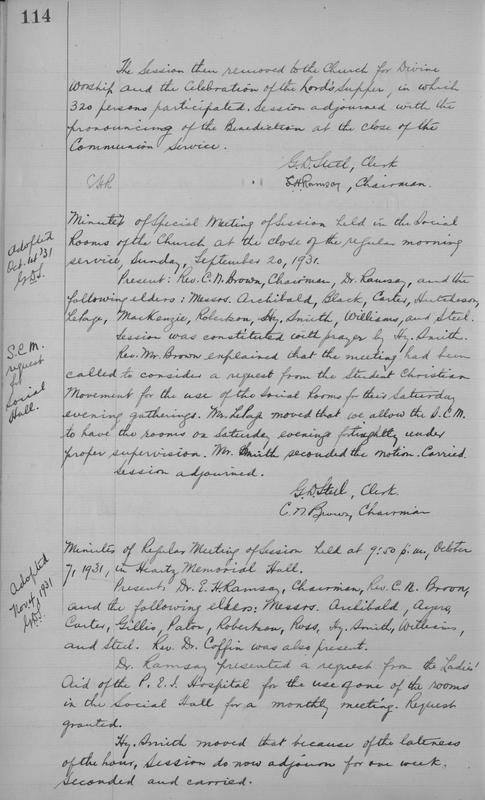 114
The Session then removed to the Church for Divine
Worship and the Celebration of the Lord's Supper, in which
320 persons participated. Session adjourned with the
pronouncing of the Benediction at the close of the
Communion Service.
G.D. Steel, Clerk
E.H. Ramsay, Chairman.
Adopted
Oct. 14/31
G.D.S.
Minutes of Special Meeting of Session held in the Social
Rooms of the Church at the close of the regular morning
service, Sunday, September 20, 1931.
Present: Rev. C.N. Brown, Chairman, Dr. Ramsay, and the
following elders: Messrs. Archibald, Black, Carter, Hutcheson,
LePage, MacKenzie, Robertson, Hy. Smith, Williams, and Steel.
Session was constituted with prayer by Hy. Smith.
S.C.M.
request
of
Social
Hall.
Rev. Mr. Brown explained that the meeting had been
called to consider a request from the Student Christian
Movement for the use of the Social Rooms for their Saturday
evening gatherings. Mr. LePage moved that we allow the S.C.M.
to have the rooms on Saturday evenings fortnightly under
proper supervision. Mr. Smith seconded the motion. Carried.
Session adjourned.
G.D. Steel, Clerk.
C.N. Brown, Chairman
Adopted
Nov. 4, 1931
G.D.S.
Minutes of Regular Meeting of Session held at 9:50 p.m., October
7, 1931, in Heartz Memorial Hall.
Present: Dr. E.H. Ramsay, Chairman, Rev. C.N. Brown,
and the following elders: Messrs. Archibald, Ayers,
Carter, Gillis, Paton, Robertson, Ross, Hy. Smith, Williams,
and Steel. Rev. Dr. Coffin was also present.
Dr. Ramsay presented a request from the Ladies'
Aid of the P.E.I. Hospital for the use of one of the rooms
in the Social Hall for a monthly meeting. Request
granted.
Hy. Smith moved that because of the lateness
of the hour, Session do now adjourn for one week.
Seconded and carried.